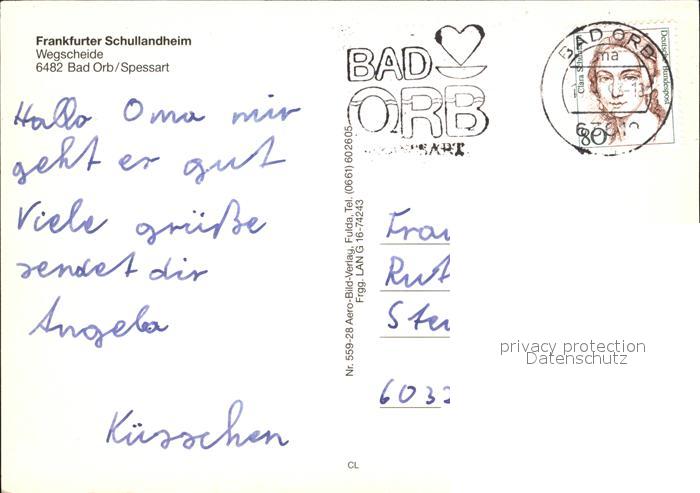 Frankfurter Schullandheim
Wegscheide
6482 Bad Orb/Spessart
Hallo Oma mir
geht er gut
Viele grüße
sendet dir
Angela
Küsschen
Nr. 559-28 Aero-Bild-Verlag, Fulda, Tel. (0661) 602605
Frgg. LAN G 16-74243
CL
BAD
ORB
BAD ORB
Deutsche Bundespost
80
Frau
Rut
Ste
603
privacy protection
Datenschutz